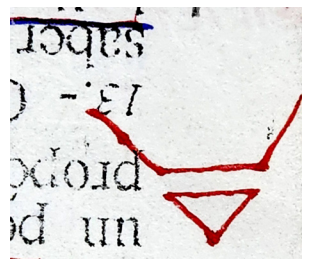 un pe
propo
13.-
saber